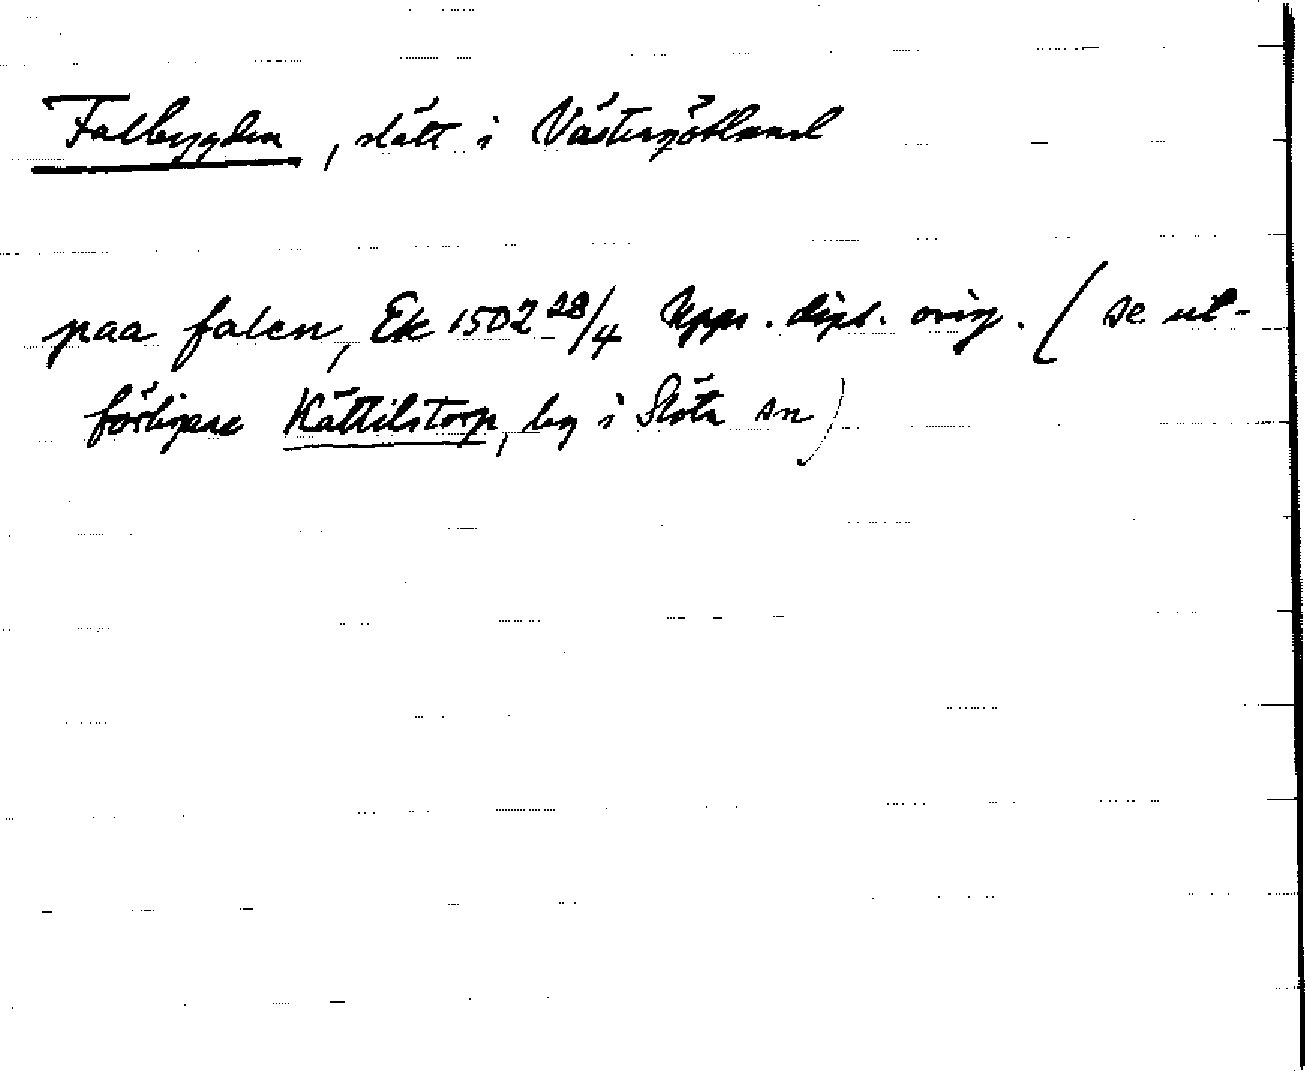 Falbygden, slätt i Västergötland
paa falen, Ek 1502 28/4 Upps. dipl. orig. (se ut-
förligare Kättilstorp, by i Slöta sn)